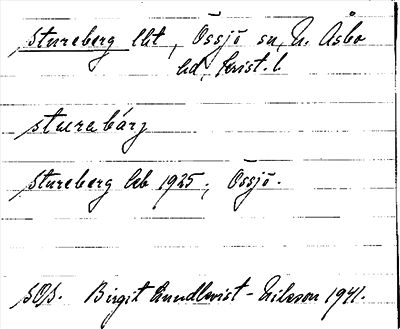 Stureberg lht, Össjö sn, N. Åsbo
hd, Krist. l.
sturebárj
Stureberg Gb 1925, Össjö.
SOS. Birgit Lundkvist-Nilsson 1941.